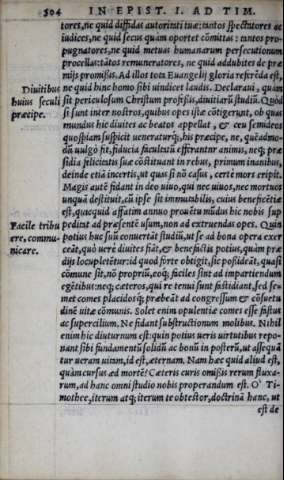 504 IN EPIST. I. AD TIM.
tores, ne quid diffidas autoritati tuæ: tantos spectatores ac
iudices, ne quid secus quàm oportet cōmittas: tantos pro-
pugnatores, ne quid metuas humanarum persecutionum
procellas: tātos remuneratores, ne quid addubites de præ
mijs promißis. Ad illos tota Euangelij gloria referēda est,
Diuitibus ne quid hinc homo sibi uindicet laudis. Declaraui, quàm
huius seculi sit periculosum Christum profeßis, diuitiarū studiū. Quòd
præcipe. si sunt inter nostros, quibus opes istæ cōtigerunt, ob quas
mundus hic diuites ac beatos appellat, & ceu semideos
quospiam suspicit ueneraturq́;, his præcipe, ne, quēadmo-
dū uulgò fit, fiducia facultatū efferantur animis, neq́; præ
sidia felicitatis suæ cōstituant in rebus, primum inanibus,
deinde etiā incertis, ut quas si nō casus, certè mors eripit.
Magis autē fidant in deo uiuo, qui nec uiuos, nec mortuos
unquā destituit, cū ipse sit immutabilis, cuius beneficētiæ
est, quicquid affatim annuo prouētu mūdus hic nobis sup
Facile tribu peditat ad præsentē usum, non ad extruendas opes. Quin
ere, commu- potius huc suū conuertāt studiū, ut sese ad bona opera exer
nicare. ceāt, quò uerè diuites fiāt, & benefactis potius, quàm præ
dijs locupletētur: id quod fortè obtigit, sic poßideāt, quasi
cōmune sit, nō propriū, eoq́; faciles sint ad impartiendum
egētibus: neq́; cæteros, qui re tenui sunt fastidiant, sed se-
met comes placidosq́; præbeāt ad congressum & cōsuetu
dinē uitæ cōmunis. Solet enim opulentiæ comes esse fastus
ac supercilium. Ne fidant substructionum molibus. Nihil
enim hic diuturnum est: quin potius ueris uirtutibus repo-
nant sibi fundamentū solidū ac bonū in posterū, ut assequā
tur ueram uitam, id est, æternam. Nam hæc quid aliud est,
quàm cursus ad mortē? Cæteris curis omißis rerum fluxa-
rum, ad hanc omni studio nobis properandum est. O Ti-
mothee, iterum atq́; iterum te obtestor, doctrinā hanc, ut
est de